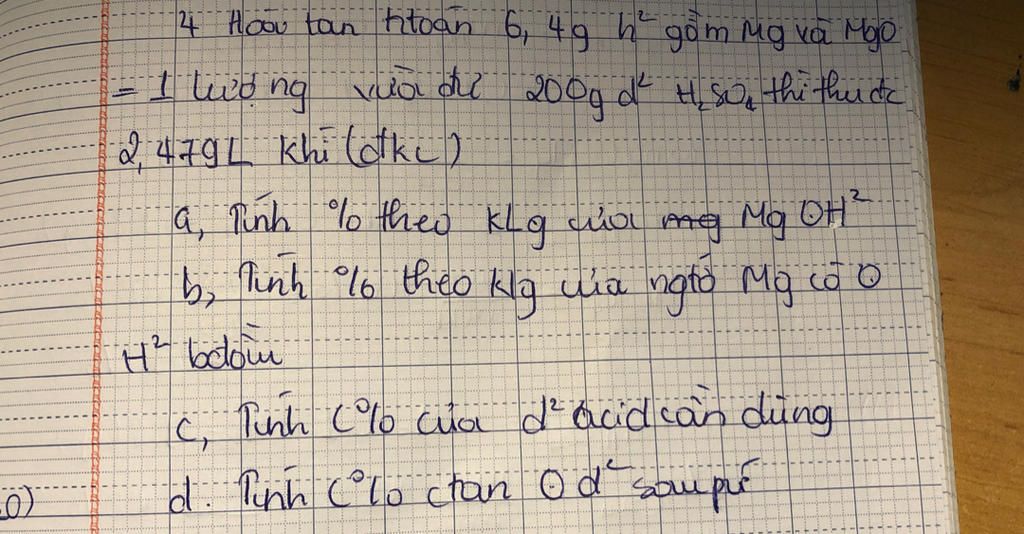 4 Hoàu tan htoàn 6,4g h² gồm Mg và MgO
= 1 lượng vừa đủ 200g d² H₂SO₄ thì thu đc
2,479L khí (đkc)
a, Tính % theo klg của mg Mg OH²
b, Tính % theo klg của ngtố Mg có ở
H² bđầu
c, Tính C% của d² acid cần dùng
d. Tính C% ctan ở d² sau pứ
0)